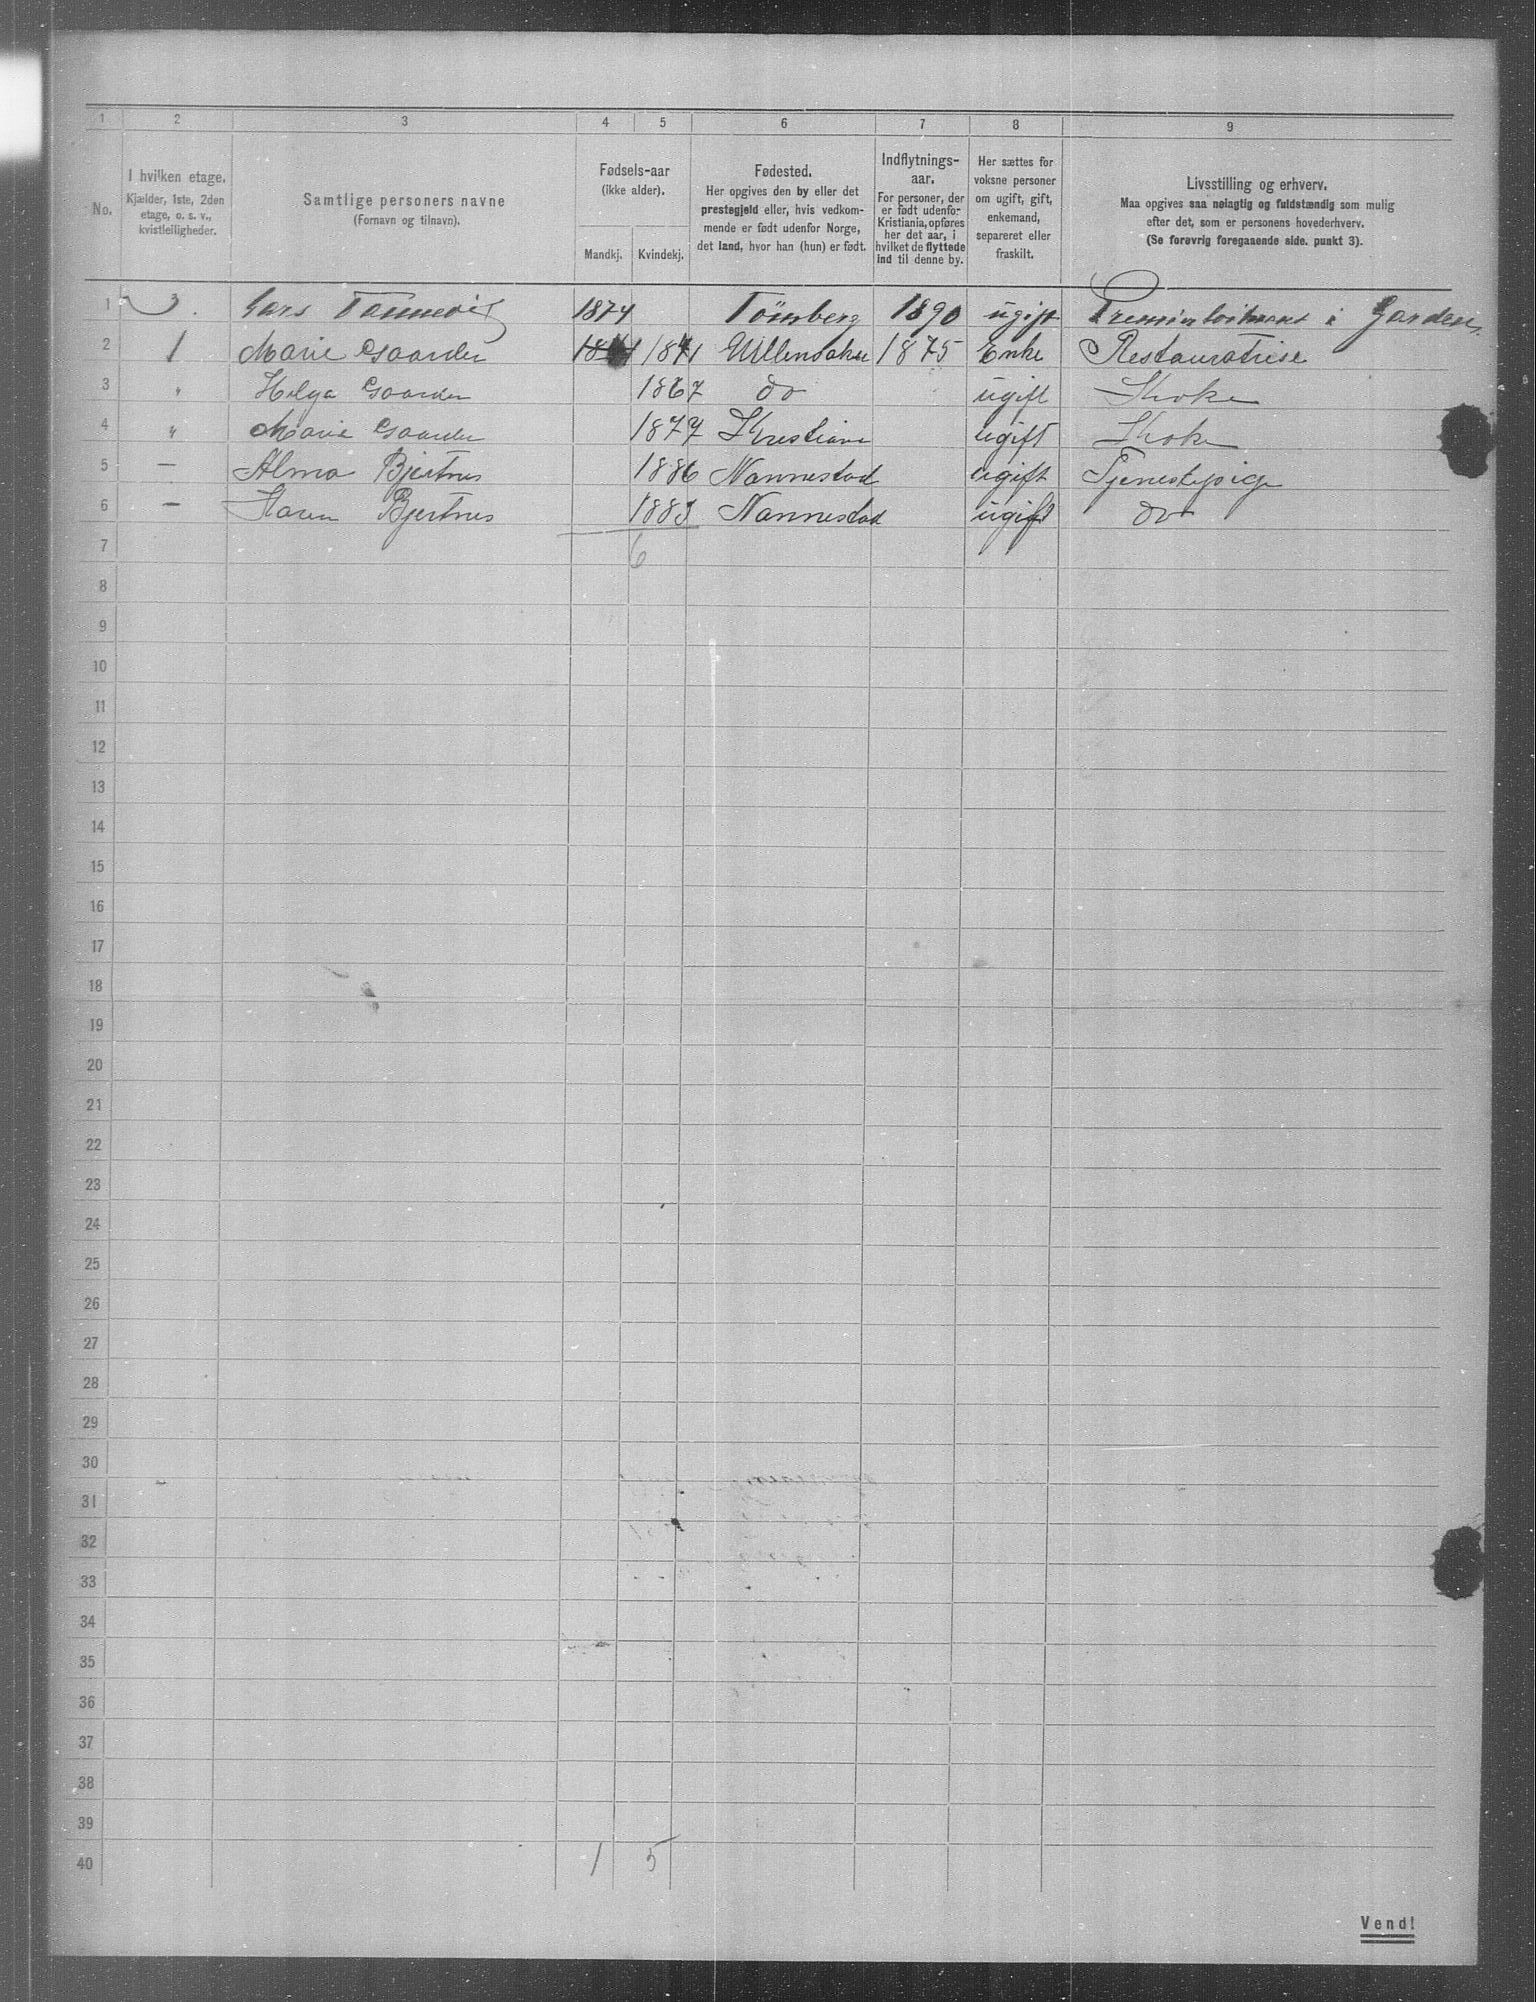 1 2 3 4 5 6 7 8 9
No.
I hvilken etage.
Kjælder, 1ste, 2den
etage, o. s. v.,
kvistleiligheder.
Samtlige personers navne
(Fornavn og tilnavn).
Fødsels-aar
(ikke alder).
Mandkj. Kvindekj.
Fødested.
Her opgives den by eller det
prestegjeld eller, hvis vedkom-
mende er født udenfor Norge,
det land, hvor han (hun) er født.
Indflytnings-
aar.
For personer, der
er født udenfor
Kristiania, opføres
her det aar, i
hvilket de flyttede
ind til denne by.
Her sættes for
voksne personer
om ugift, gift,
enkemand,
separeret eller
fraskilt.
Livsstilling og erhverv.
Maa opgives saa nøiagtig og fuldstændig som mulig
efter det, som er personens hovederhverv.
(Se forøvrig foregaaende side. punkt 3).
1 3. Lars 1874 Tönsberg 1890 ugift i Garden
2 1 Marie Gaarder Ullensaker 1875 Enke Restauratrise
3 " Helga Gaarder 1867 do ugift
4 " Marie Gaarder 1877 Kristiania ugift
5 — Alma Bjertnes 1886 Nannestad ugift Tjenestepige
6 — Karen Bjertnes 1883 Nannestad ugift do
7 6
8
9
10
11
12
13
14
15
16
17
18
19
20
21
22
23
24
25
26
27
28
29
30
31
32
33
34
35
36
37
38
39
40 1 5
Vend!